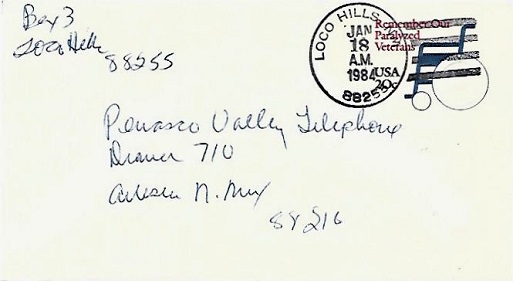 Box 3
Loco Hills
88255
LOCO HILLS
JAN
18
A.M.
1984
88255
Remember Our
Paralyzed
Veterans
USA
20c
Penasco Valley Telephone
Drawer 710
Artesia N. Mex
88216